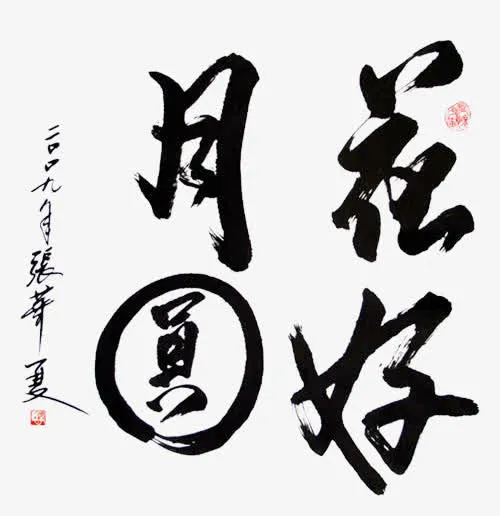 花好
月圓
二〇〇九年張華夏